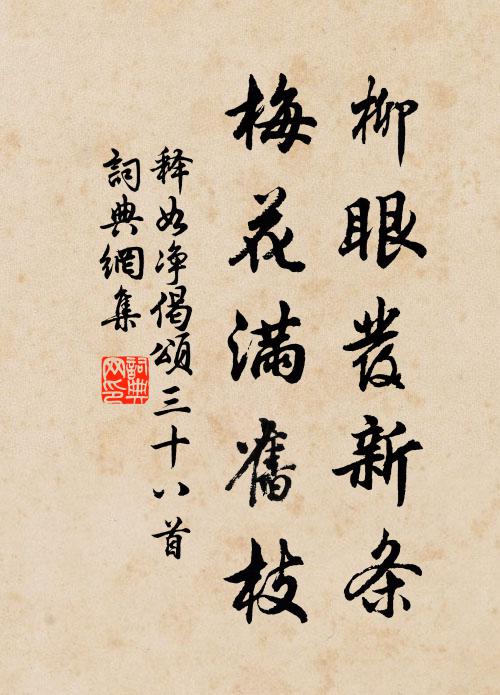 柳眼發新条
梅花滿舊枝
释如净偈頌三十八首
詞典網集
詞典网印